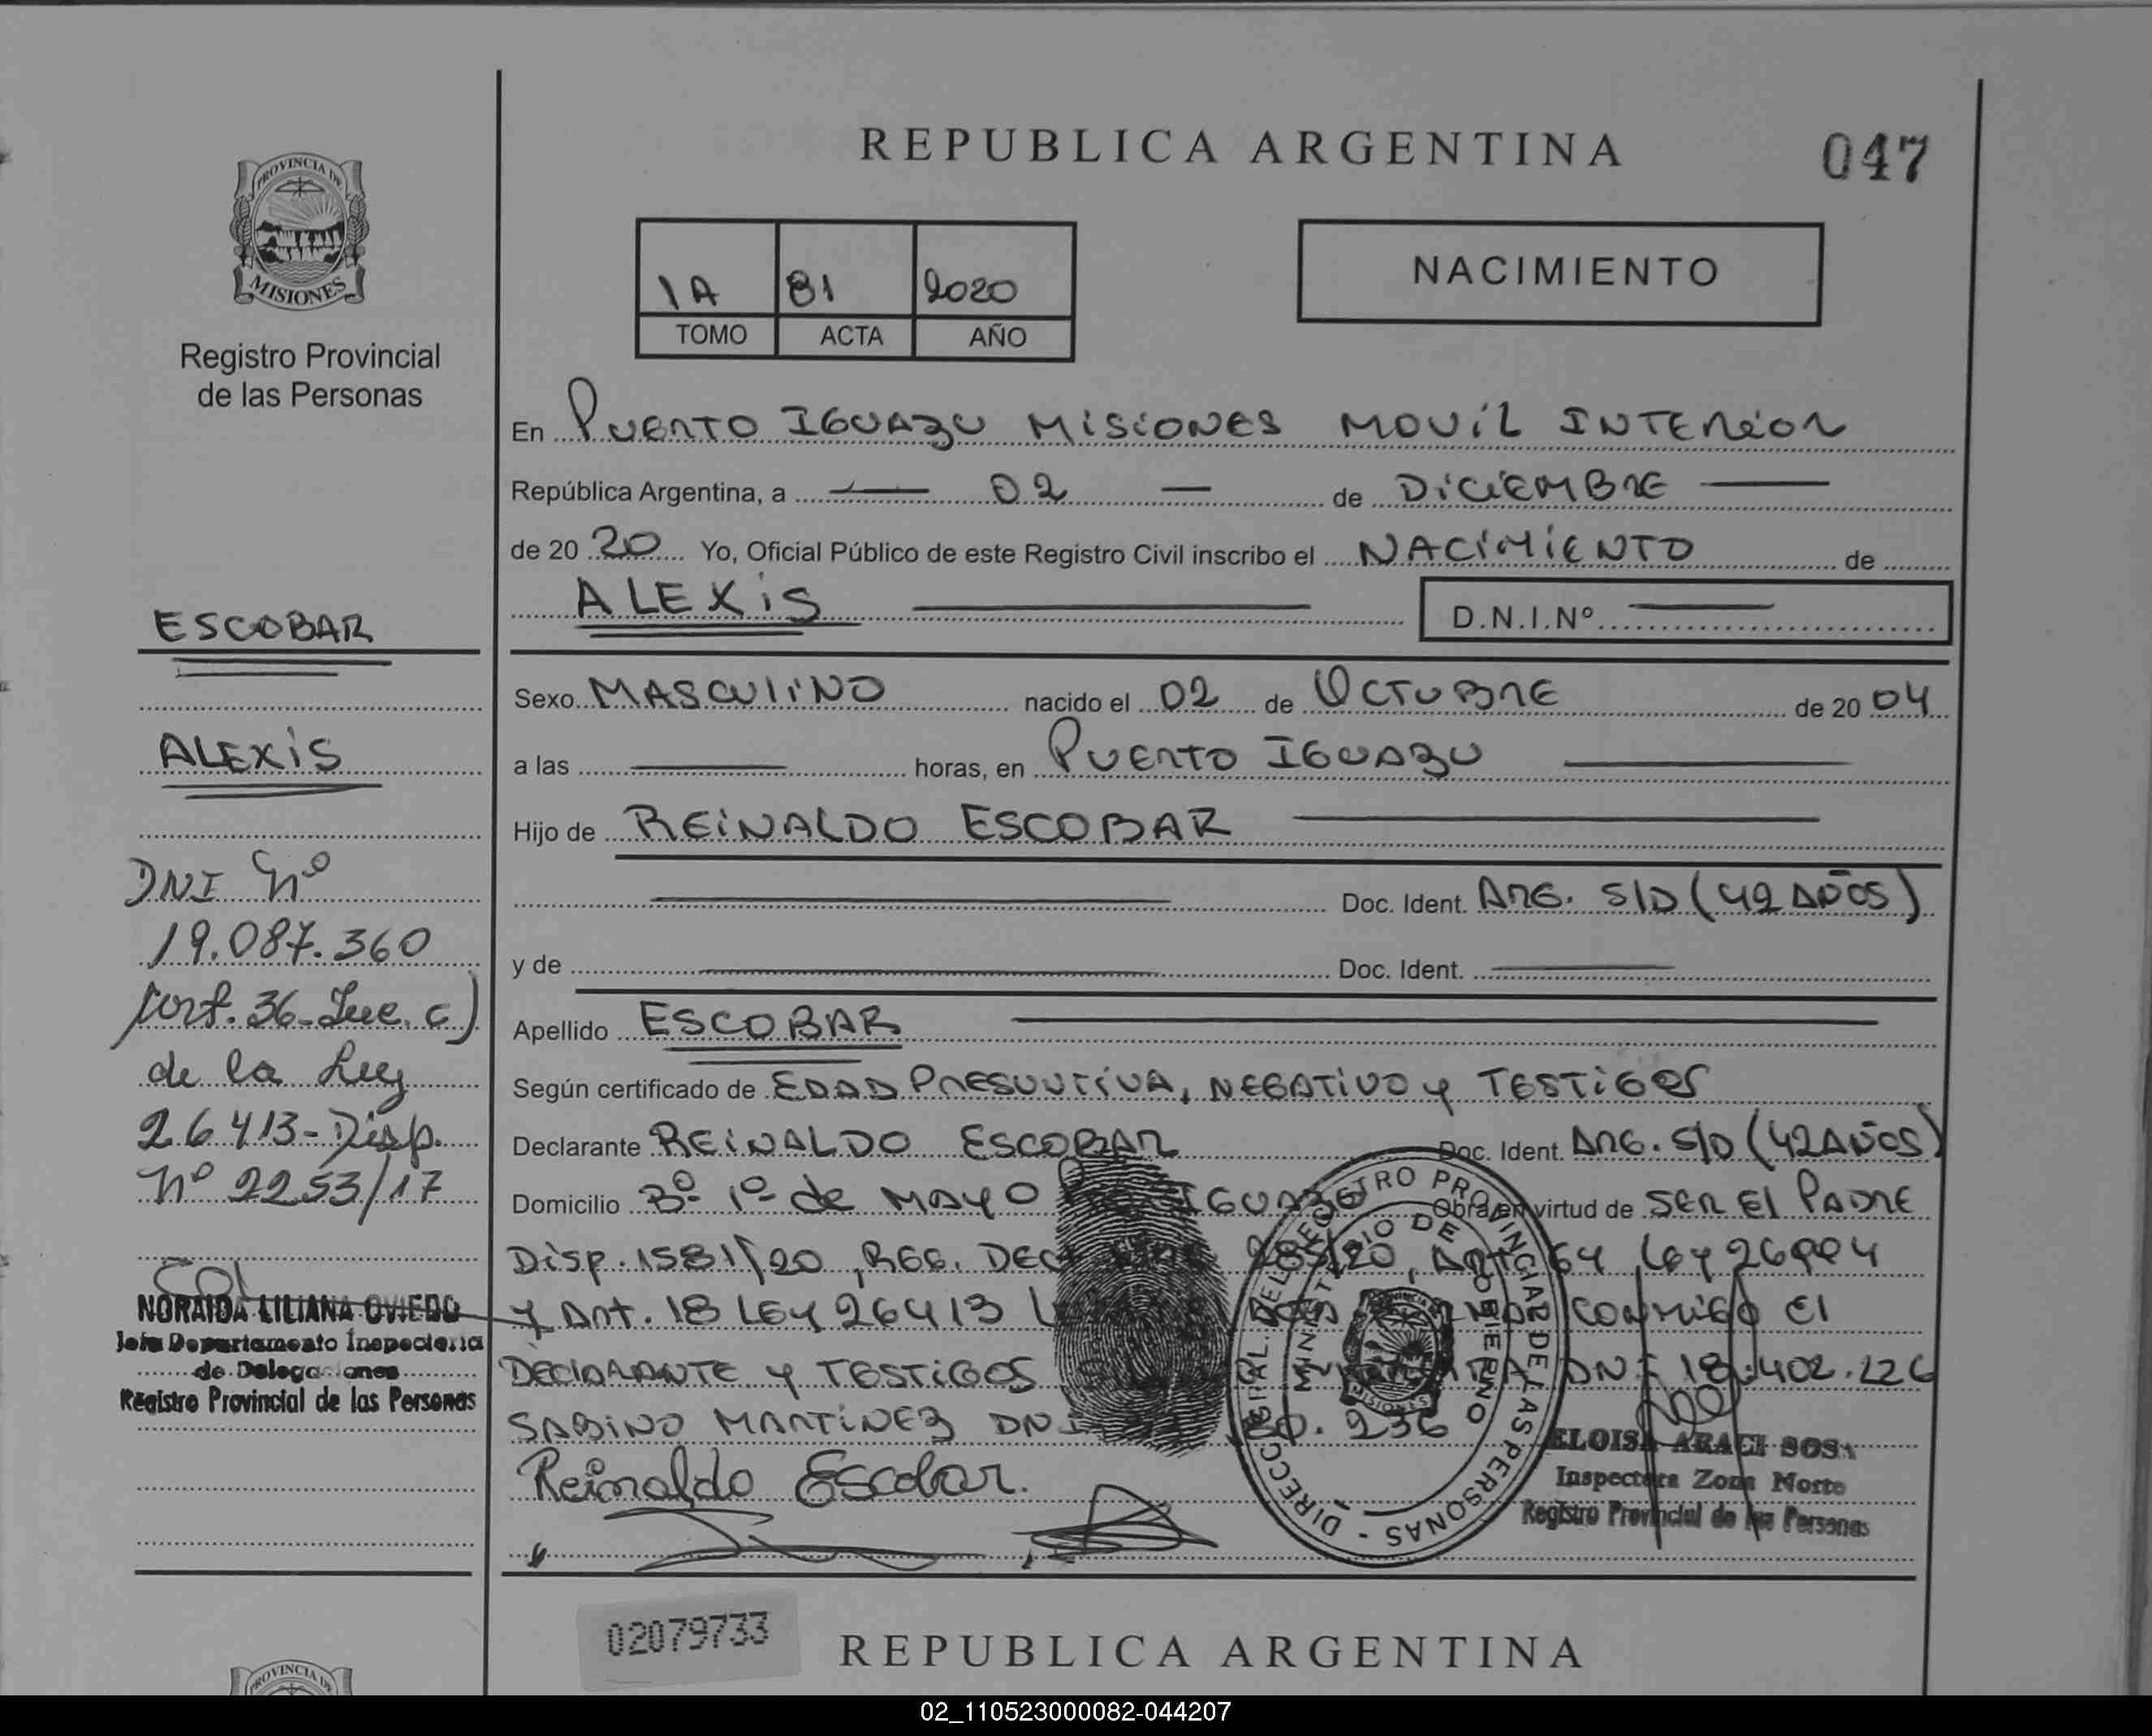 REPUBLICA ARGENTINA
047
PROVINCIA DE
MISIONES
Registro Provincial
de las Personas
1A 81 2020
TOMO ACTA AÑO
NACIMIENTO
En PUERTO IGUAZU MISIONES MOVIL INTERIOR
República Argentina, a — 02 — de DICIEMBRE —
de 20 20 Yo, Oficial Público de este Registro Civil inscribo el NACIMIENTO de
ALEXIS — D.N.I.Nº —
ESCOBAR
ALEXIS
DNI Nº
19.087.360
26413-Disp.
de la Ley
Nº 2253/17
NORAIDA LILIANA OVIEDO
Jefa Departamento Inspectoria
de Delegaciones
Registro Provincial de las Personas
Sexo MASCULINO nacido el 02 de OCTUBRE de 20 04
a las — horas, en PUERTO IGUAZU —
Hijo de REINALDO ESCOBAR —
— Doc. Ident. ARG. S/D (42 AÑOS)
y de — Doc. Ident. —
Apellido ESCOBAR —
Según certificado de EDAD PRESUNTIVA, NEGATIVO y TESTIGOS
Declarante REINALDO ESCOBAR Doc. Ident. ARG. S/D (42 AÑOS)
Domicilio Bº 1º de MAYO IGUAZU Obra en virtud de SER EL PADRE
DISP. 1581/20, REG. 285/20, ART 64 LEY 26994
Y ART. 18 LEY 26413 CONMIGO EL
DECLARANTE Y TESTIGOS DNI 18.402.226
SABINO MARTINEZ DNI 236
Reinaldo Escobar.
DIRECC. GRAL. DEL REGISTRO PROVINCIAL DE LAS PERSONAS -
MINISTERIO DE GOBIERNO
MISIONES
ELOISA ARACI SOSA
Inspectora Zona Norte
Registro Provincial de las Personas
02079733
REPUBLICA ARGENTINA
PROVINCIA DE
02_110523000082-044207